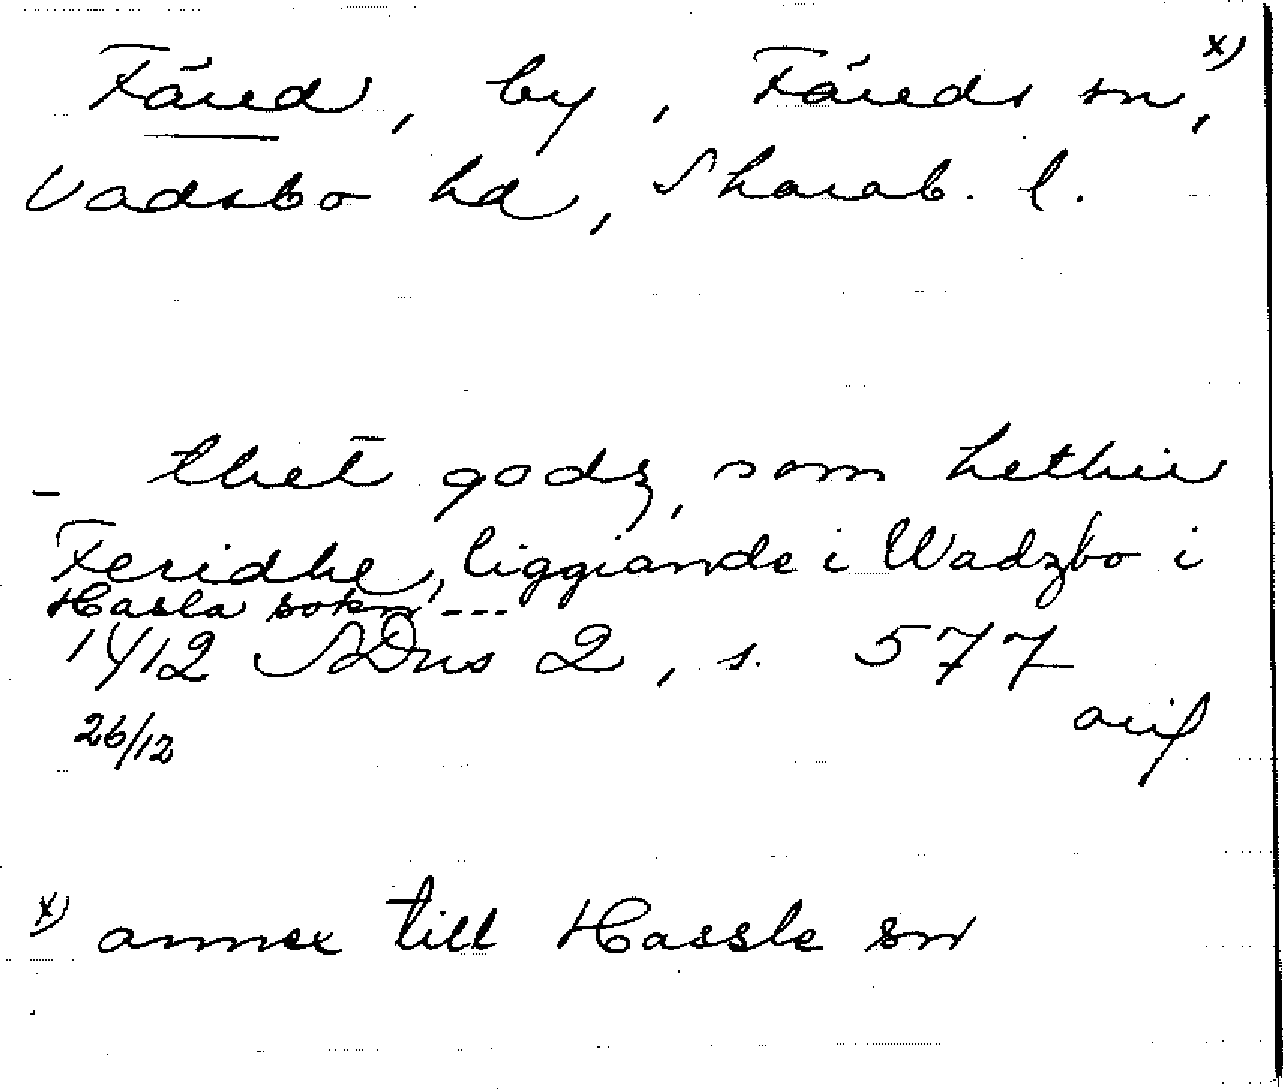 Färed, by, Färeds sn, x)
Vadsbo hd, Skarab. l.
- thet godz, som hethir
Feridhe, liggiande i Wadzbo i
Hasla sokn ---
1412 SDns 2, s. 577
26/12
avif
x) annex till Hassle sn